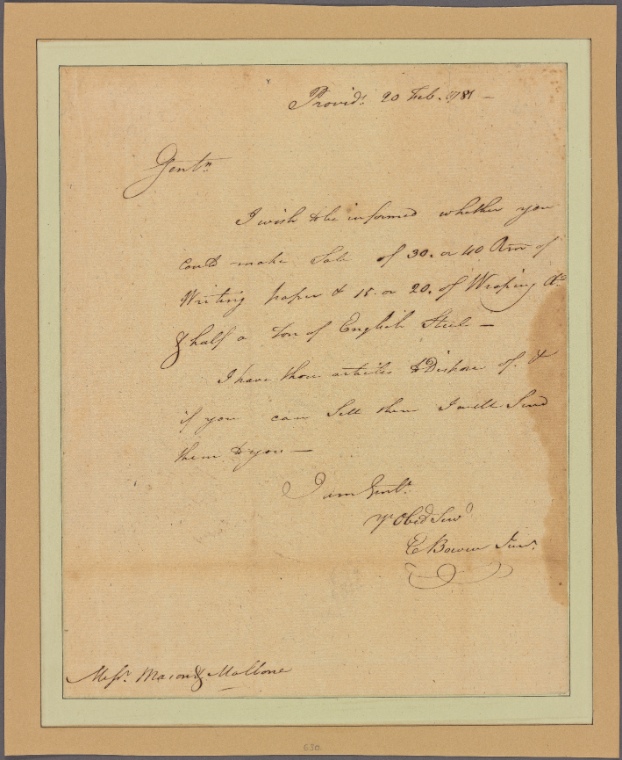 Provid. 20 Feb. 1781 —
Gentn
I wish to be informed whether you
could make Sale of 30. or 40 Rm of
Writing paper & 15. or 20. of Wraping Do
& half a Ton of English Steel —
I have those articles to Dispose of. &
if you can Sell them I will Send
them to you —
I am Gent.
Yr Obed Serv
E Bowen Junr.
Messrs. Mason & Malbone
630.